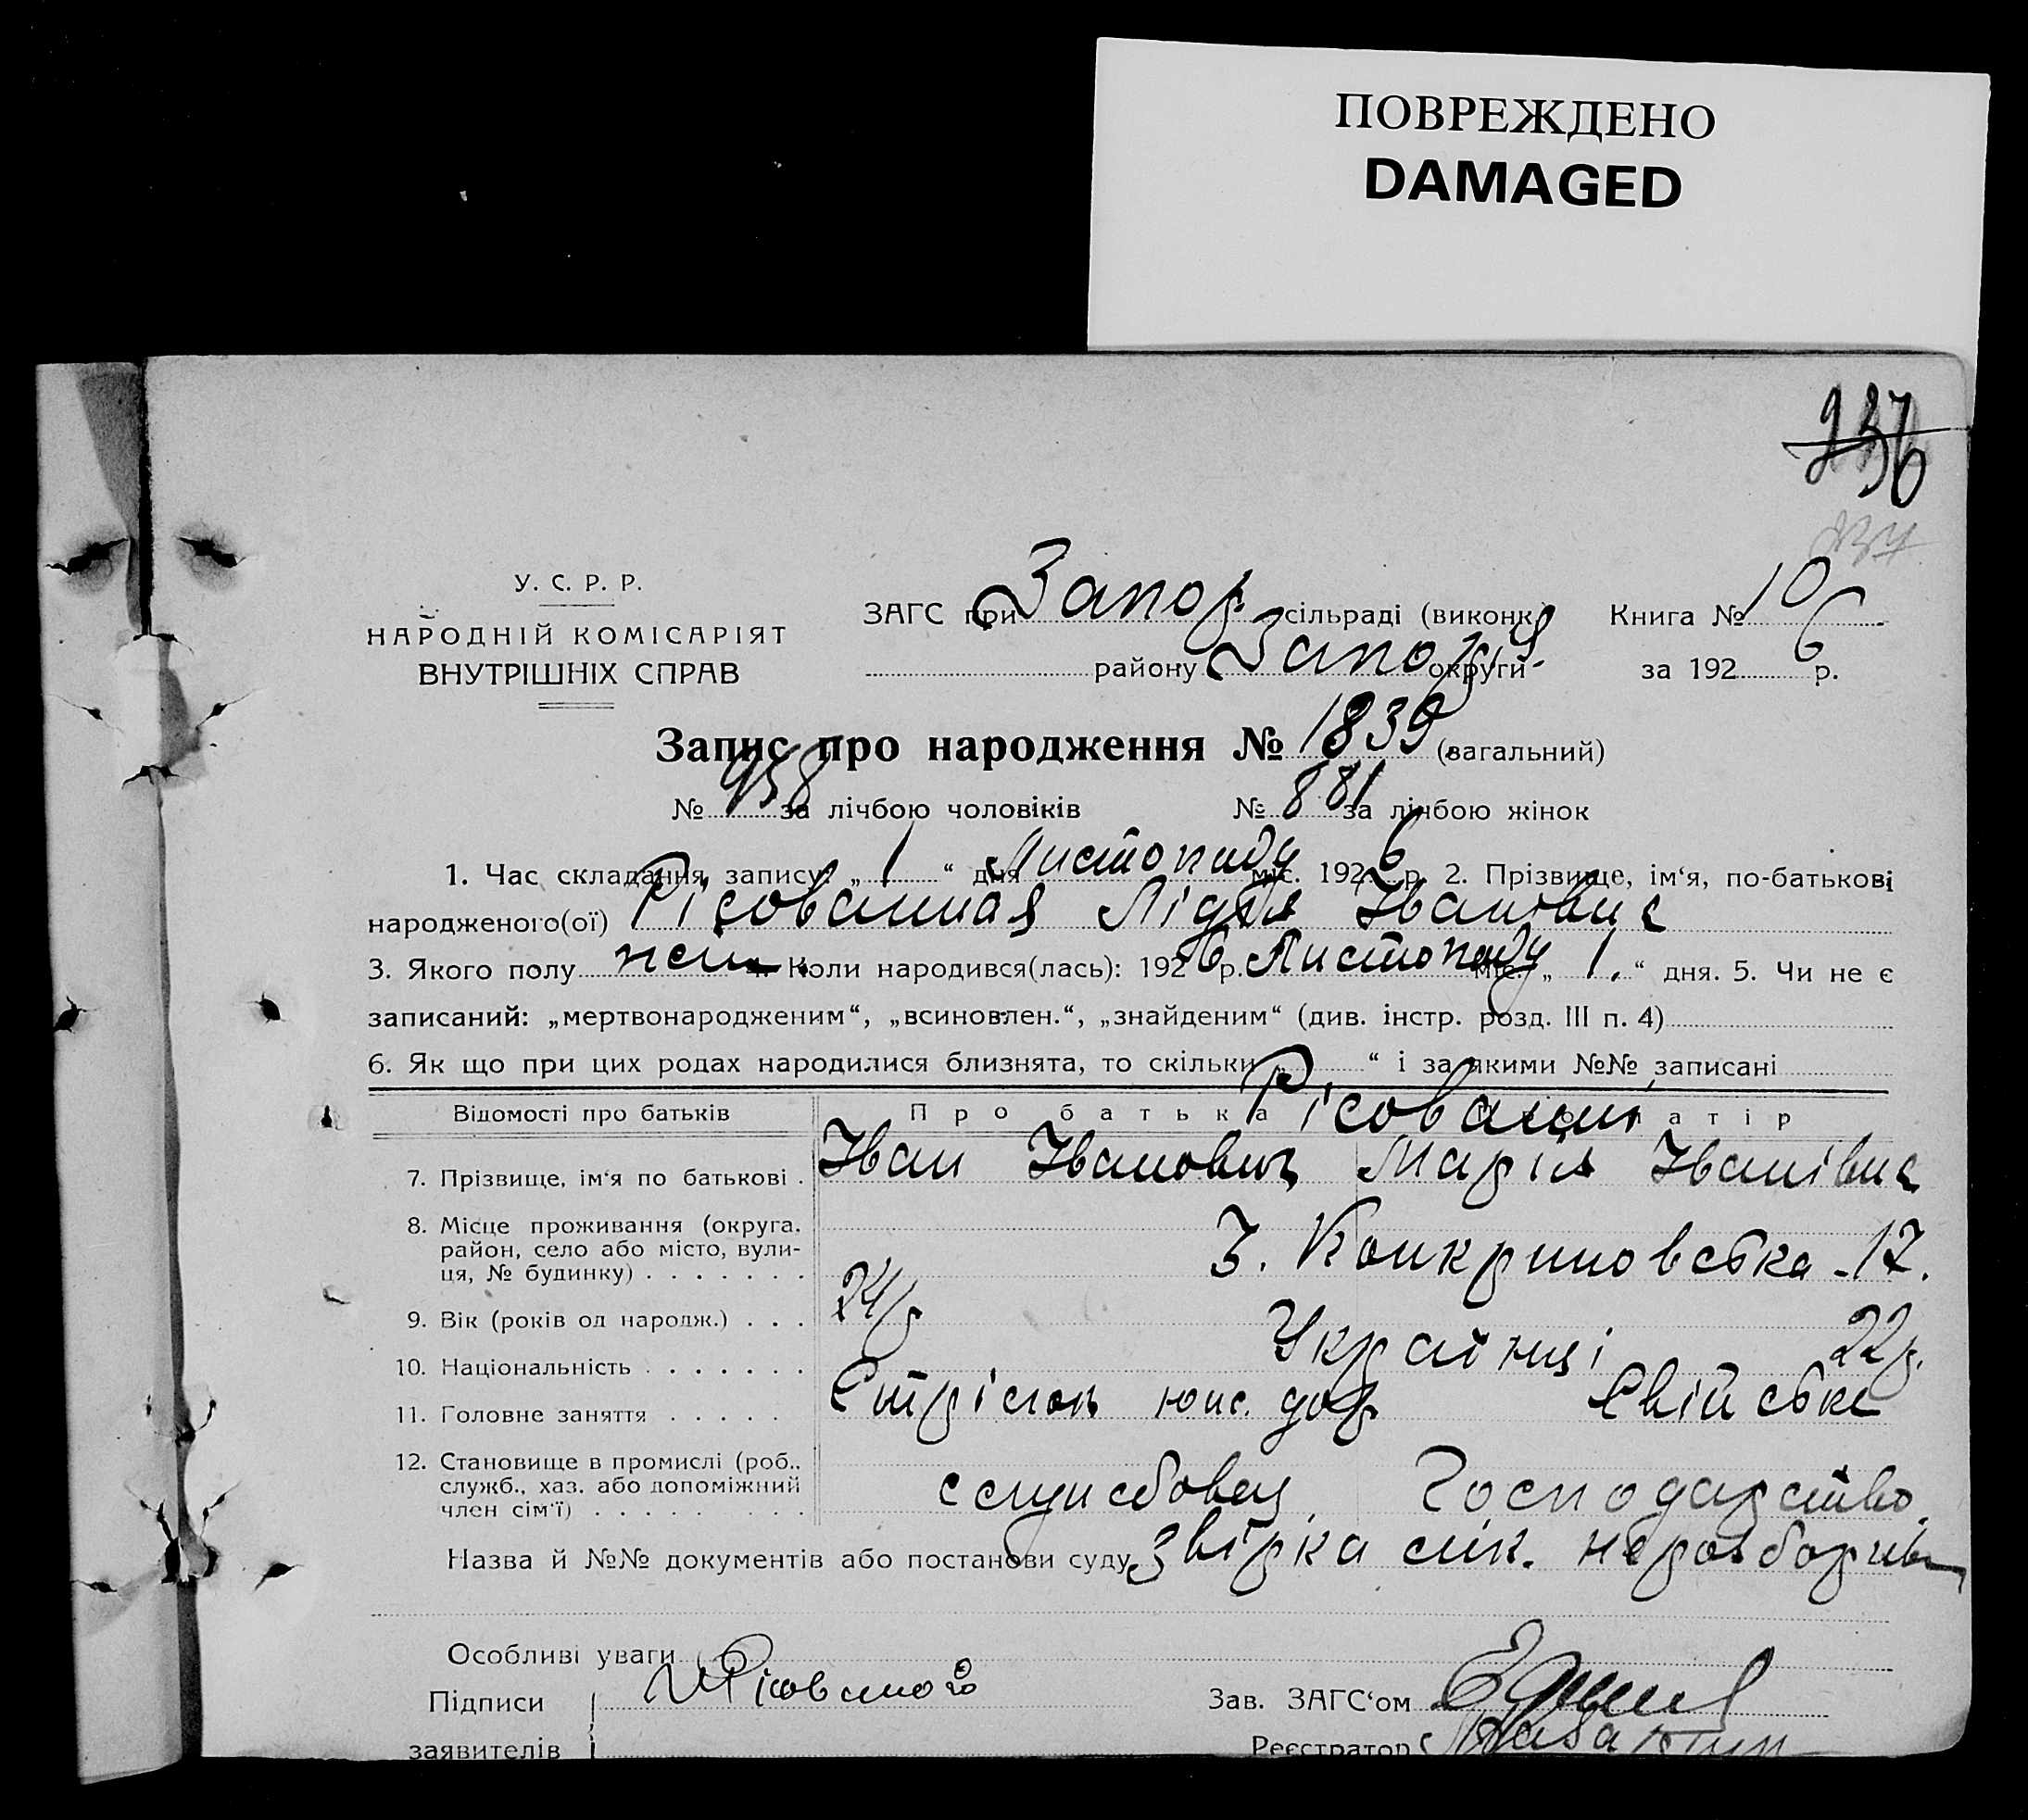 ПОВРЕЖДЕНО
DAMAGED
236
237
У. С. Р. Р.
НАРОДНІЙ КОМІСАРІЯТ
ВНУТРІШНІХ СПРАВ
ЗАГС при Запор сільраді (виконк) Книга № 10
району Запоріз округи за 1926 р.
Запис про народження № 1839 (загальний)
№ 958 за лічбою чоловіків № 881 за лічбою жінок
1. Час складання запису: „ 1 “ дня Листопаду міс. 1926 р. 2. Прізвище, ім‘я, по-батькові
народженого(ої) Рісованная Лідія Івановна
3. Якого полу жін. 4. Коли народився(лась): 1926 р. Листопаду міс. „ 1. “ дня. 5. Чи не є
записаний: „мертвонародженим“, „всиновлен.“, „знайденим“ (див. інстр. розд. III п. 4)
6. Як що при цих родах народилися близнята, то скільки „ “ і за якими №№ записані
Відомості про батьків Про батька Рісовани матір
7. Прізвище, ім‘я по батькові . Іван Іванович Марія Іванівна
8. Місце проживання (округа, район, село або місто, вулиця, № будинку) . . . . . . . З. Конкриновська - 17.
9. Вік (років од народж.) . . . 24 р 22 р.
10. Національність . . . . . . . Українці
11. Головне заняття . . . . . Стрілок юж. дор Свійське
12. Становище в промислі (роб., служб., хаз. або допоміжний член сім‘ї) . . . . . . . . . службовец Господарство
Назва й №№ документів або постанови суду звірка лік. неразборчив
Особливі уваги
Підписи Зав. ЗАГС‘ом
заявителів Реєстратор